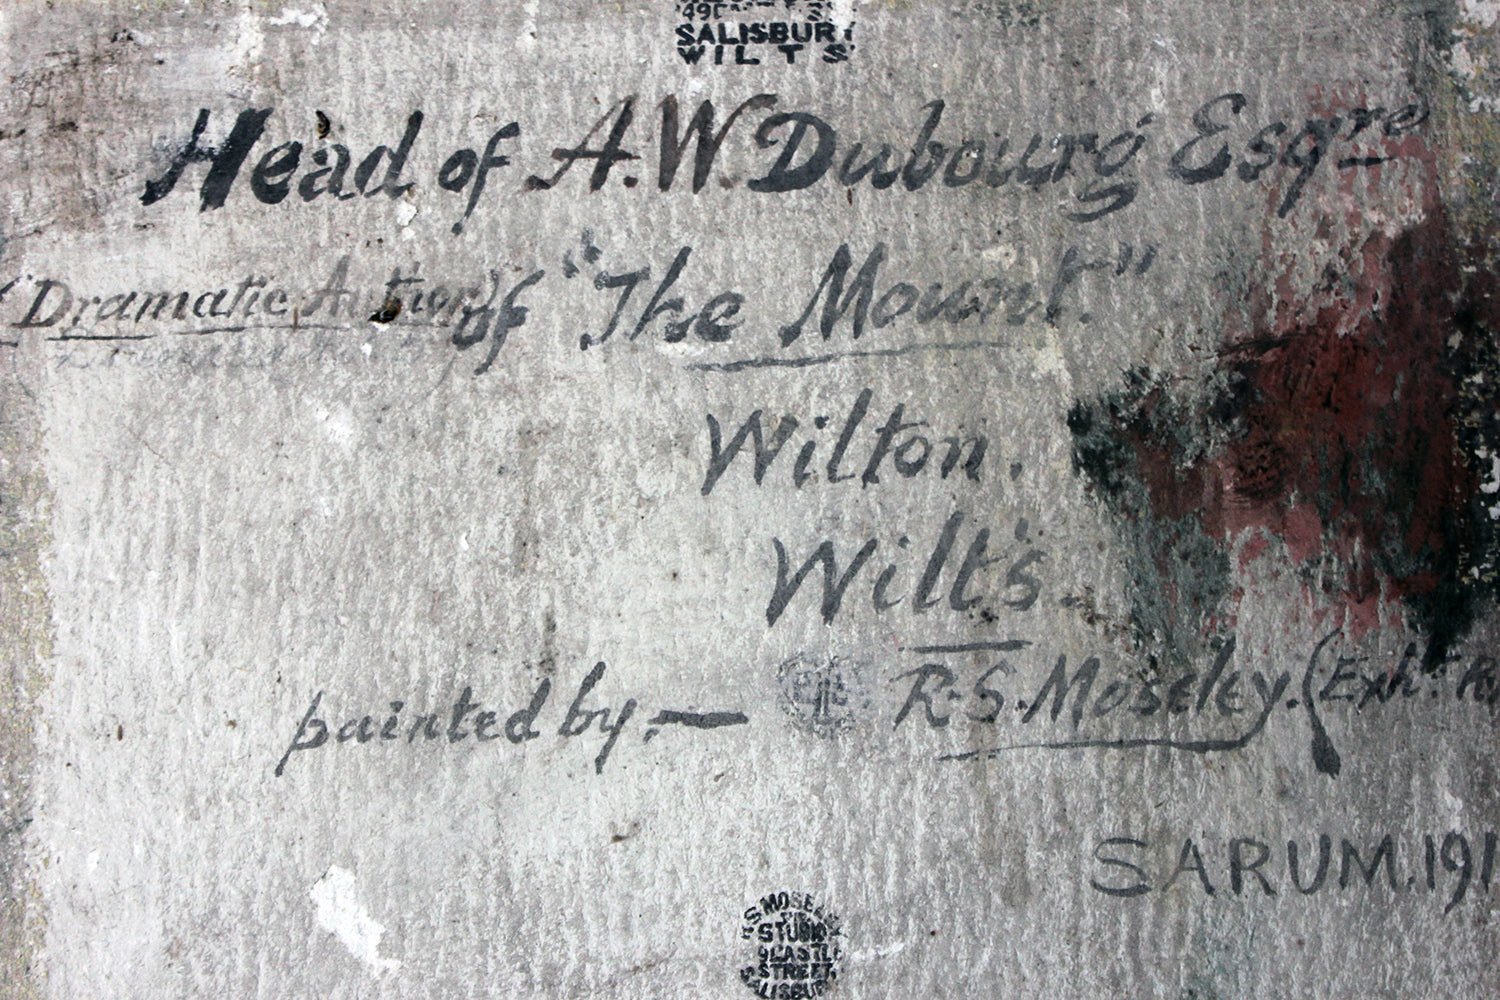 SALISBURY
WILTS
Head of A.W. Dubourg Esqre
(Dramatic Author) of "The Mount."
Wilton.
Wilt's.
painted by,— R.S. Moseley. (Exht.
SARUM. 191
S MOSELEY
STUDIO
CASTLE
STREET,
SALISBURY